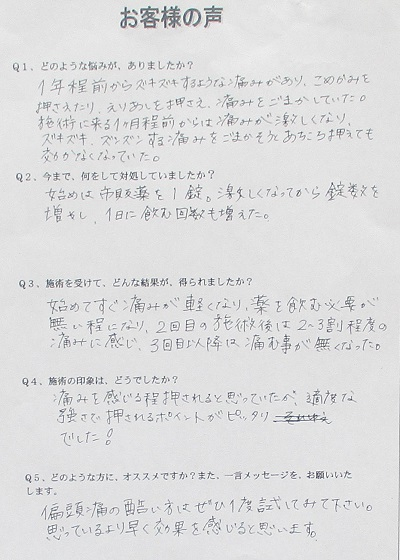 お客様の声
Q1、どのような悩みが、ありましたか？
1年程前からズキズキするような痛みがあり、こめかみを
押さえたり、えりあしを押さえ、痛みをごまかしていた。
施術に来る1ヶ月程前からは痛みが激しくなり、
ズキズキ、ズンズンする痛みをごまかそうとあちこち押えても
効かなくなっていた。
Q2、今まで、何をして対処していましたか？
始めは市販薬を1錠。激しくなってから錠数を
増やし、1日に飲む回数も増えた。
Q3、施術を受けて、どんな結果が、得られましたか？
始めてすぐ痛みが軽くなり、薬を飲む必要が
無い程になり、2回目の施術後は2〜3割程度の
痛みに感じ、3回目以降は痛む事が無くなった。
Q4、施術の印象は、どうでしたか？
痛みを感じる程押されると思っていたが、適度な
強さで押されるポイントがピッタリ
でした！
Q5、どのような方に、オススメですか？また、一言メッセージを、お願いいた
します。
偏頭痛の酷い方はぜひ1度試してみて下さい。
思っているより早く効果を感じると思います。